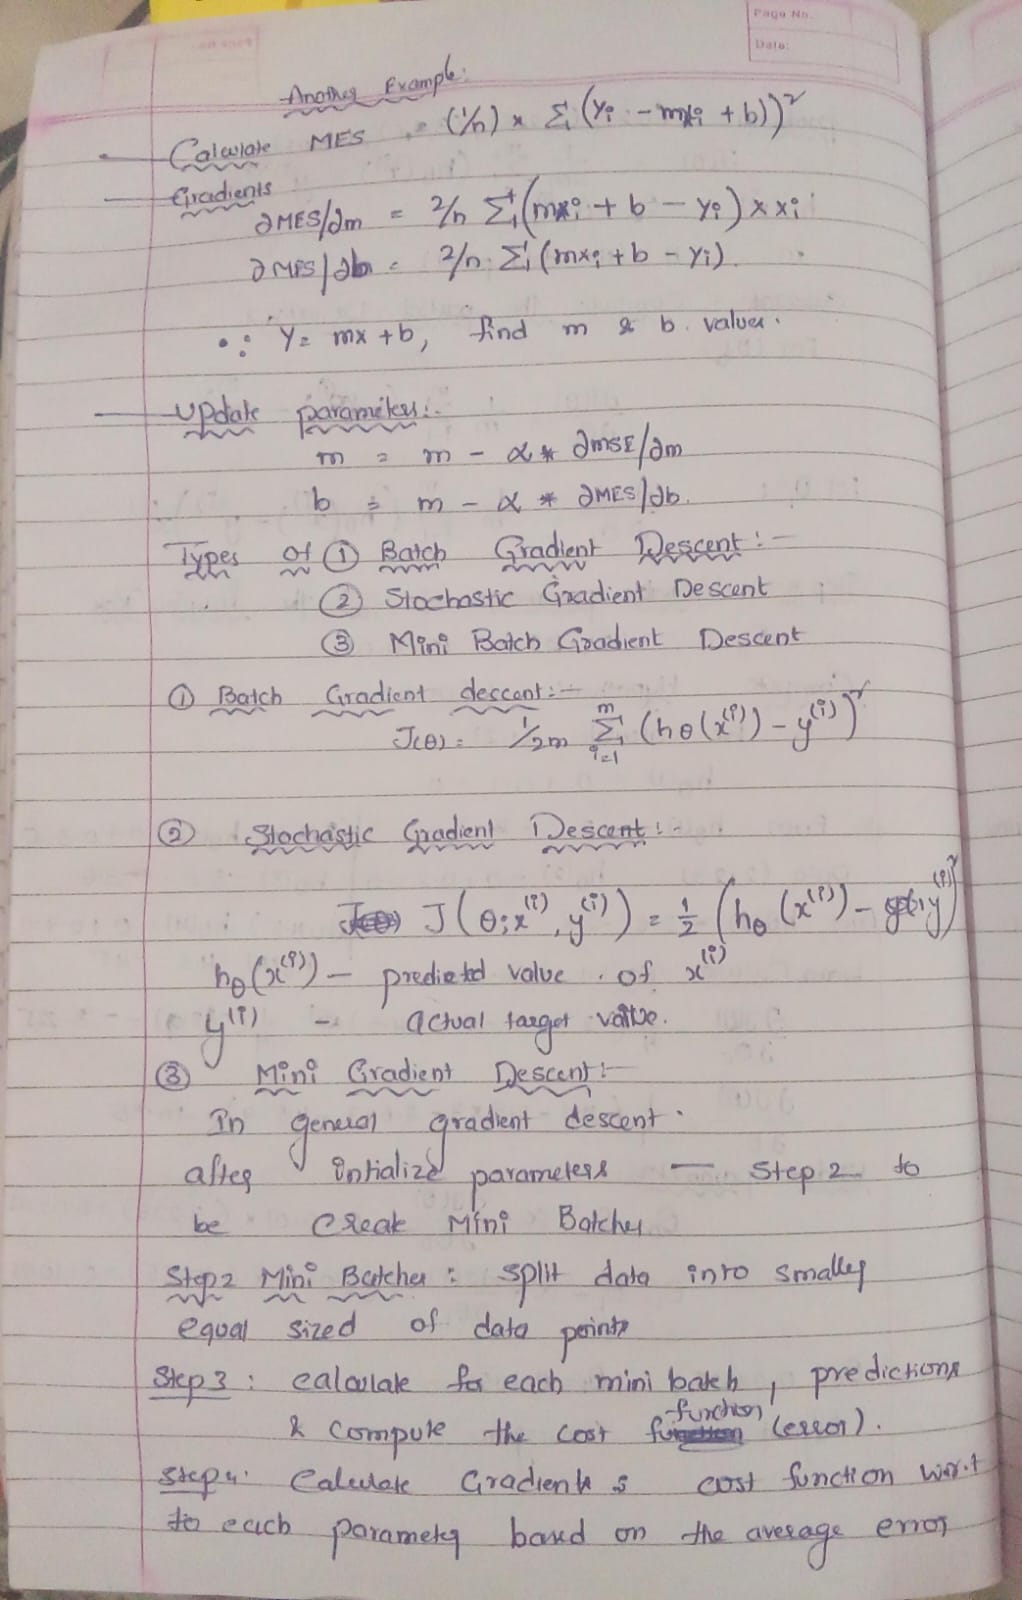 Page No.
Date:
Another Example:
Calculate MES = (1/n) * Σi (yi - mxi + b))²
Gradients
∂MES/∂m = 2/n Σi (mxi + b - yi) x xi
∂MES/∂b = 2/n Σi (mxi + b - yi).
∴ Y = mx + b, find m & b values.
Update parameters:
m = m - α * ∂MSE/∂m
b = m - α * ∂MES/∂b.
Types of ① Batch Gradient Descent :-
② Stochastic Gradient Descent
③ Mini Batch Gradient Descent
① Batch Gradient descent:-
J(θ) = 1/2m Σ i=1 m (hθ(x⁽ⁱ⁾) - y⁽ⁱ⁾)²
② Stochastic Gradient Descent :-
J(θ; x⁽ⁱ⁾, y⁽ⁱ⁾) = 1/2 (hθ (x⁽ⁱ⁾) - y⁽ⁱ⁾)²
hθ(x⁽ⁱ⁾) - predicted value of x⁽ⁱ⁾
y⁽ⁱ⁾ - actual target value.
③ Mini Gradient Descent :-
In general gradient descent.
after intialize parameters - step 2 to
be Create Mini Batches
Step2 Mini Batches : split data into smaller
equal sized of data points
Step3 : calculate for each mini batch, predictions
& compute the cost function (error).
Step4: Calculate Gradients cost function w.r.t
to each parameter based on the average error